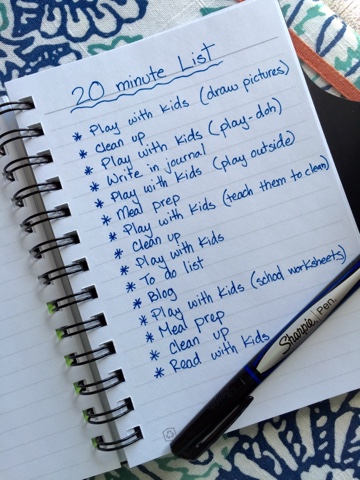 20 minute List
* Play with kids (draw pictures)
* Clean up
* Play with kids (play-doh)
* Write in journal
* Play with kids (play outside)
* Meal prep
* Play with kids (teach them to clean)
* Clean up
* Play with kids
* To do list
* Blog
* Play with kids (school worksheets)
* Meal prep
* Clean up
* Read with kids
Sharpie Pen.